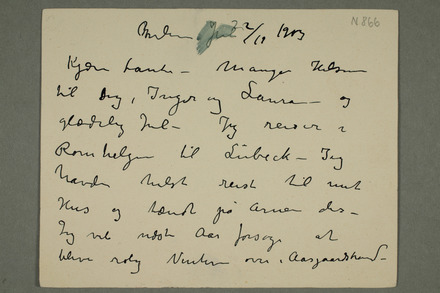 N. 866
Berlin 2/12 1903
Kjære Tante – Mange Hilsener
til Dig, Inger og Laura – og
glædelig Jul – Jeg reiser i
Romhelgen til Lübeck – Jeg
havde helst reist til mit
Hus og tændt på Arnen der –
Jeg vil næste Aar forsøge at
blive rolig Vinteren over i Aasgaardstrand –